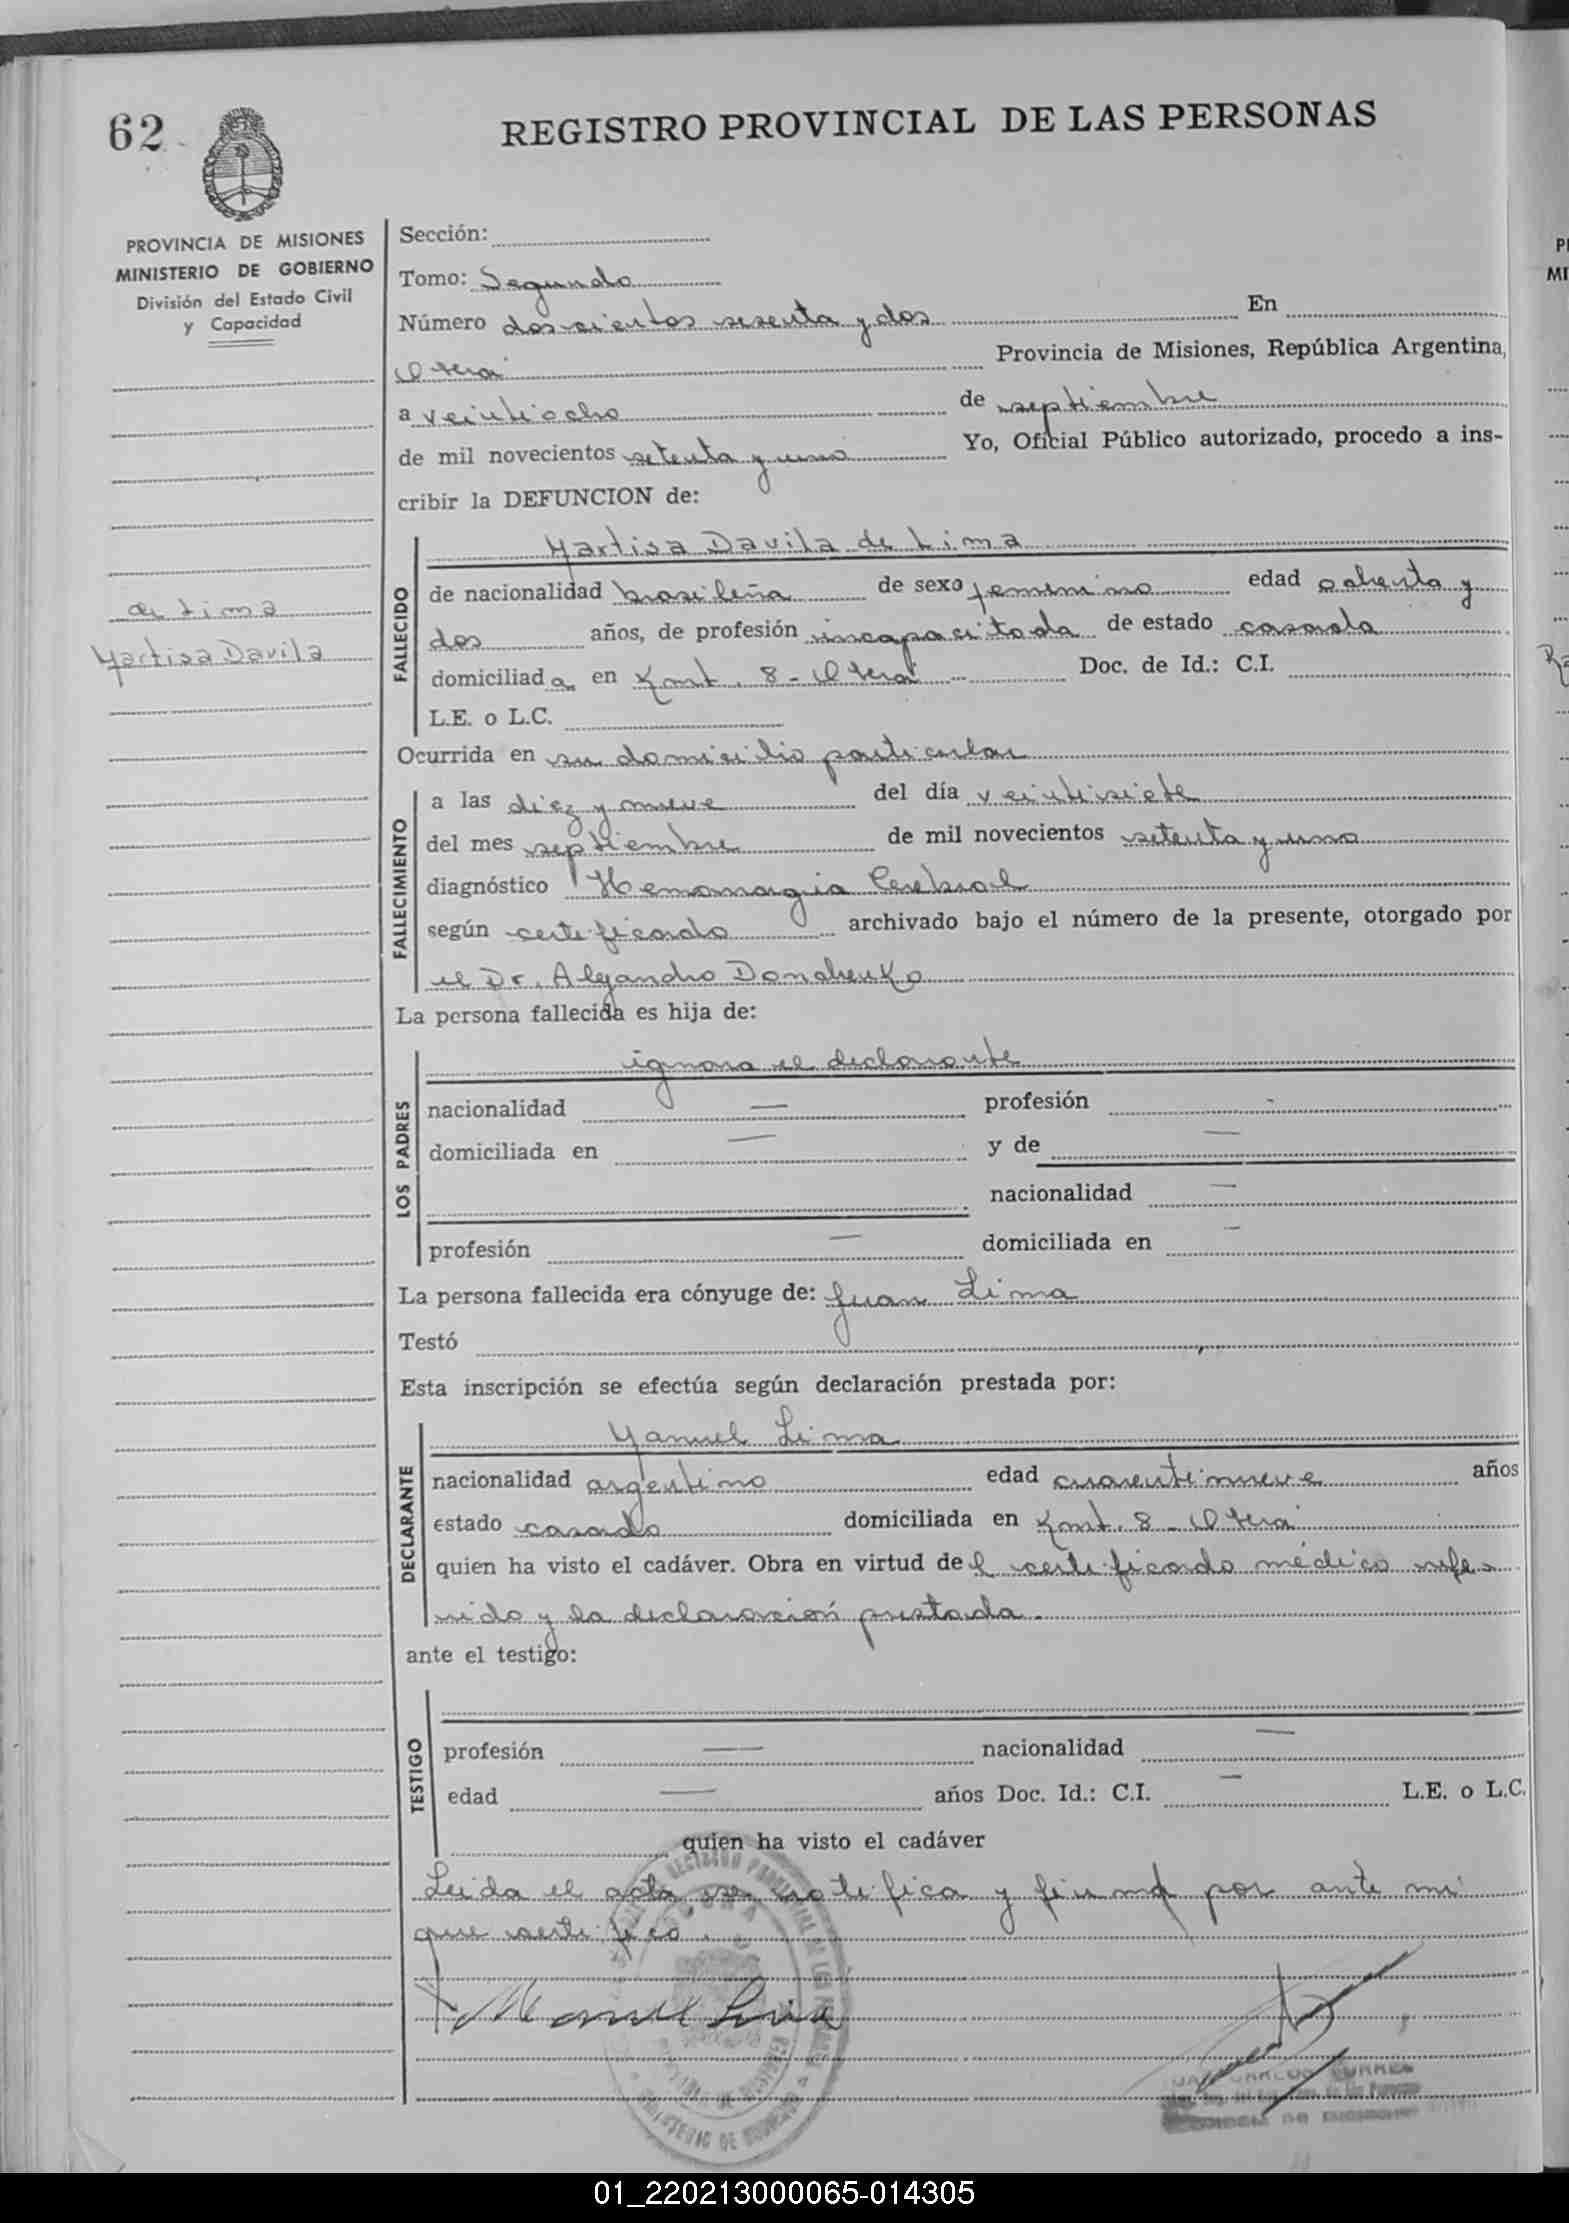 62
REGISTRO PROVINCIAL DE LAS PERSONAS
PROVINCIA DE MISIONES
MINISTERIO DE GOBIERNO
División del Estado Civil
y Capacidad
de Lima
Martisa Davila
Sección:
Tomo: Segundo
Número doscientos sesenta y dos En
Oberá Provincia de Misiones, República Argentina,
a veintiocho de septiembre
de mil novecientos setenta y uno Yo, Oficial Público autorizado, procedo a ins-
cribir la DEFUNCION de:
FALLECIDO
Martisa Davila de Lima
de nacionalidad brasileña de sexo femenino edad ochenta y
dos años, de profesión incapacitada de estado casada
domiciliada en Kmt. 8 - Oberá Doc. de Id.: C.I.
L.E. o L.C.
Ocurrida en su domicilio particular
FALLECIMIENTO
a las diez y nueve del día veintisiete
del mes septiembre de mil novecientos setenta y uno
diagnóstico Hemorragia Cerebral
según certificado archivado bajo el número de la presente, otorgado por
el Dr. Alejandro Donchenko
La persona fallecida es hija de:
LOS PADRES
ignora el declarante
nacionalidad — profesión -
domiciliada en — y de —
nacionalidad —
profesión — domiciliada en —
La persona fallecida era cónyuge de: Juan Lima
Testó
Esta inscripción se efectúa según declaración prestada por:
DECLARANTE
Manuel Lima
nacionalidad argentino edad cuarentinueve años
estado casado domiciliada en Kmt. 8 - Oberá
quien ha visto el cadáver. Obra en virtud del certificado médico refe-
rido y la declaración prestada.
ante el testigo:
TESTIGO
profesión — nacionalidad —
edad — años Doc. Id.: C.I. — L.E. o L.C.
quien ha visto el cadáver
Leida el acta se ratifica y firma por ante mi
que certifico.
Manuel Lima
01_220213000065-014305